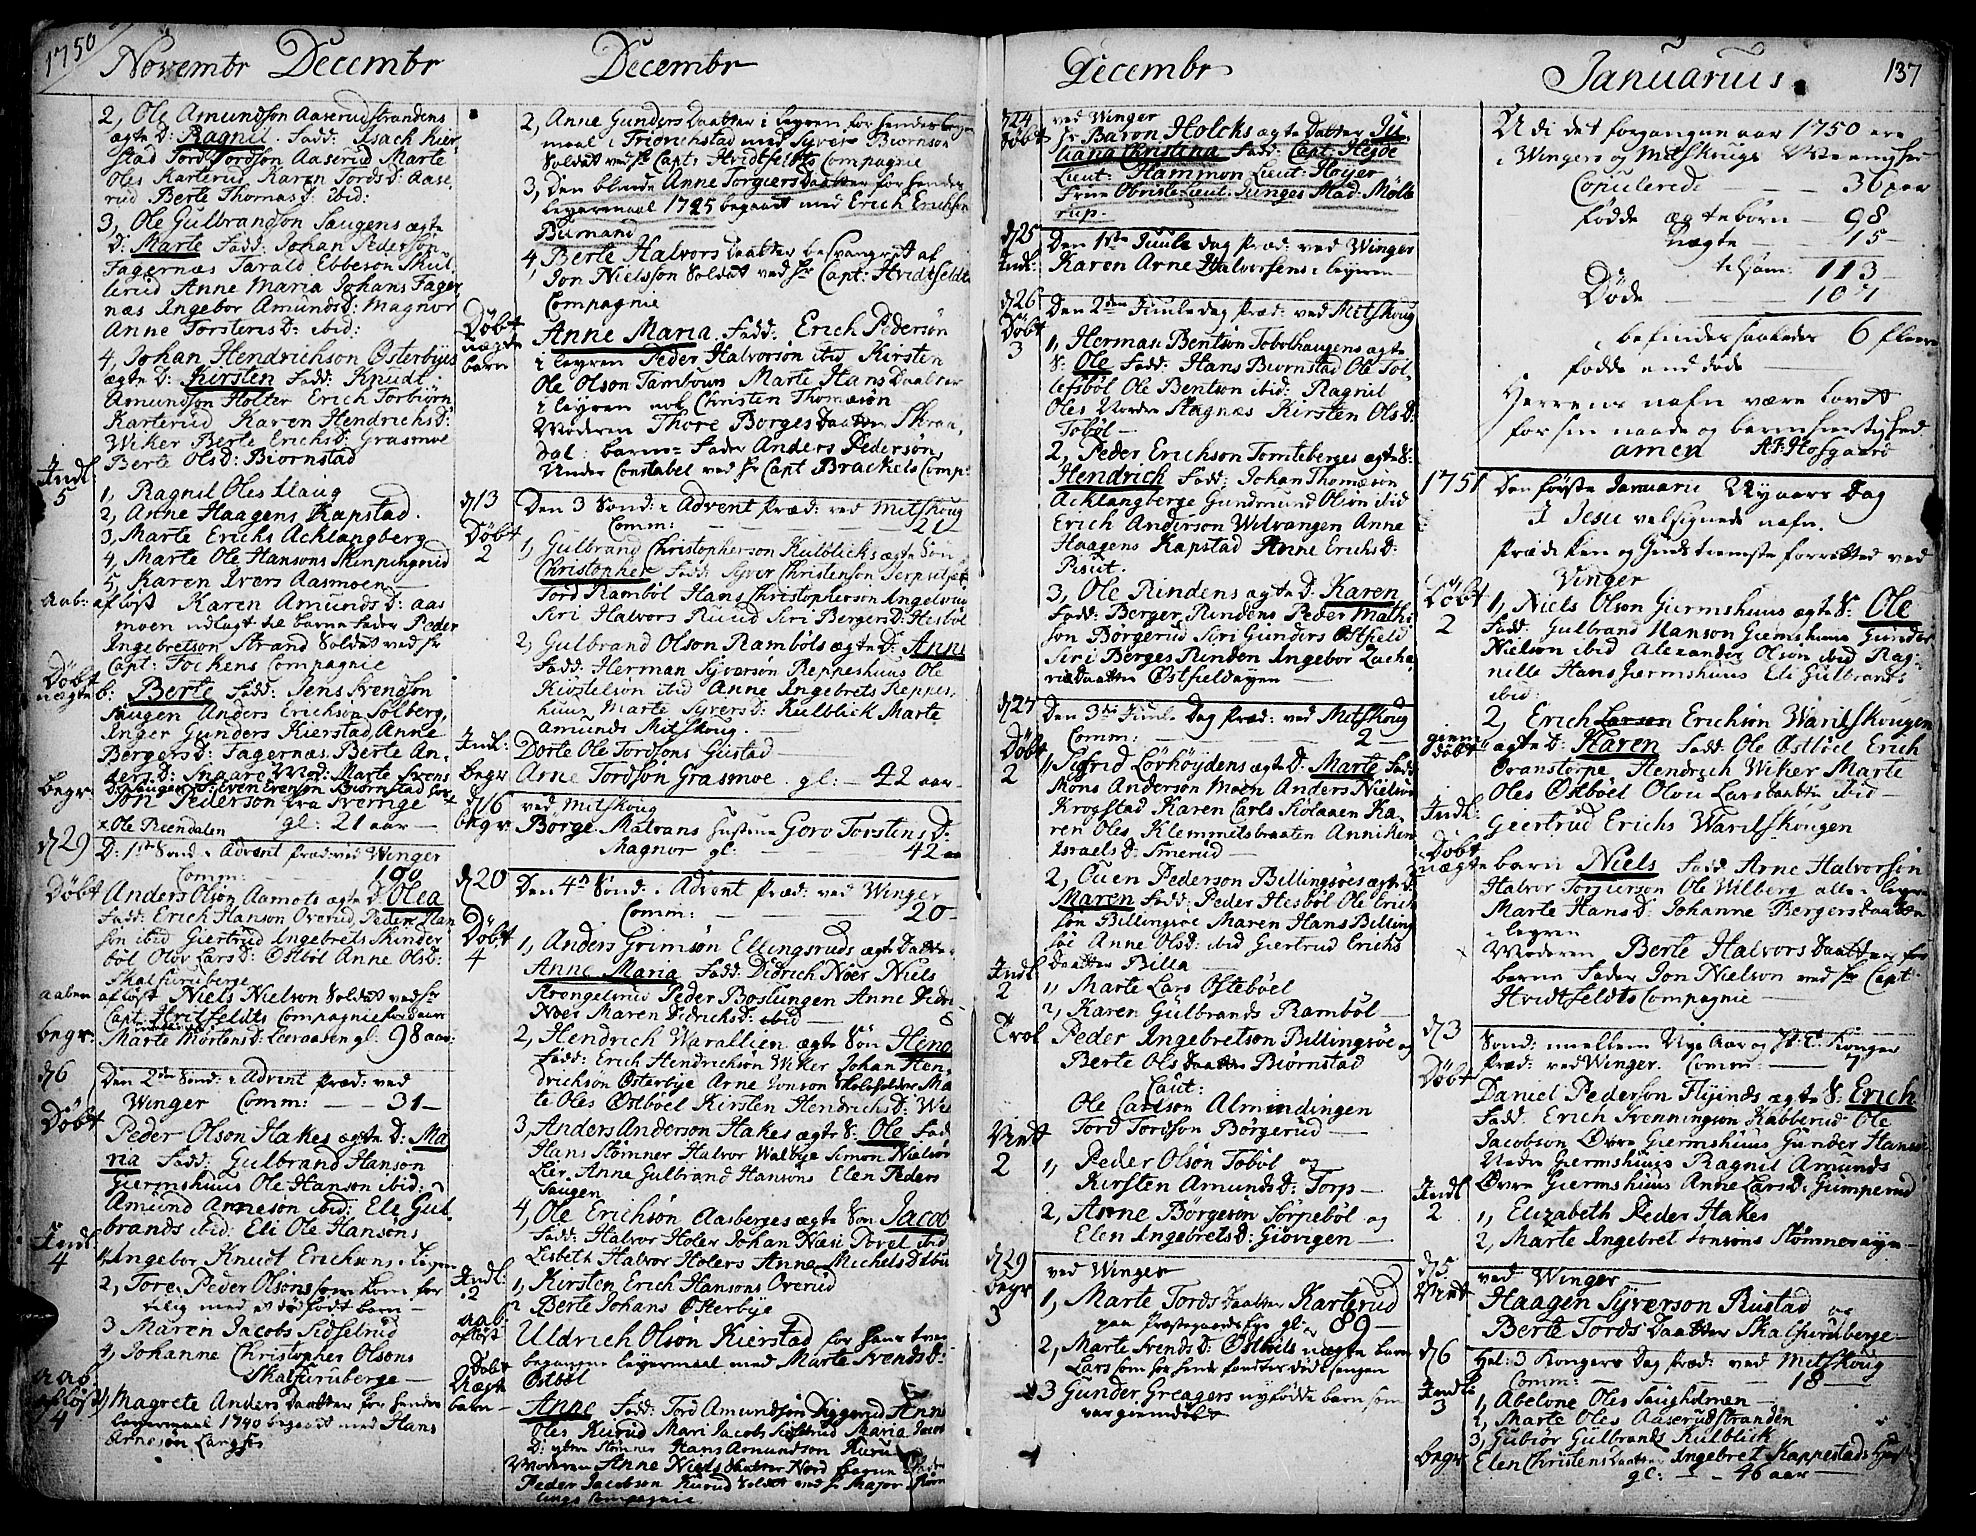 1750
Novembr Decembr
Decembr
2, Ole Amundson Aaserudstrandens
ægte D: Ragnil Fadd: Isach Kier-
stad Tord Tordson Aaserud Marte
Oles Karterud Karen Tords D: Aase-
rud Berte Thomas D: ibid:
3, Ole Gulbrandson Saugens ægte
D: Marte Fadd: Johan Pederson
Fagernæs Tarald Ebbeson Skul-
lerud Anne Maria Johans Fager
næs Ingebor Amunds D: Magnor
Anne Torstens D: ibid:
4, Johan Hendrichson Østerbyes
ægte D: Kirsten Fadd: Knudt
Amundson Holter Erich Torbiørn
Karterud Karen Hendrichs D:
Wiker Berte Erichs D: Grasmoe
Berte Ols D: Biørnstad
Indl:
5
1, Ragnil Oles Haug
2, Anne Haagens Kapstad.
3, Marte Erichs Acklangberg
4, Marte Ole Hansons Skinpungrud
5, Karen Ivers Aasmoen
aab: afløst Karen Amunds D: aas
moen udlagt til barne fader Peder
Ingebretson Strand Soldat ved Hr
Capt: Fockens Compagnie
Døbt
uægte b: Berte Fadd: Jens Svendson
Saugen Anders Erichson Solberg,
Inger Gunders Kierstad Anne
Bergers D: Fagernæs Berte An-
ders D: Snaare Mod: Marte Svens
D: Saugen Even Evenson Biørnstad
begr: Jon Pederson fra Sverrige
gl: 21 aar
x Ole Riendalen
d 29 D: 1ste Sond: i Advent Præd: ved Winger
Comm: 190
Døbt Anders Olson Aamots ægte D: Olea
Fadd: Erich Hanson Overud Peder Han
son ibid Giertrud Ingebrets Skinder
bøl Olov Lars D: Østbøl Anne Ols D:
Skalfuruberge
aaben afløst Niels Nielson Soldat ved Hr
Capt. Hvitfeldts Compagnie
begr: Marte Mortens D: Leeraasen gl: 98 aar:
d 6 Den 2den Sønd: i Advent Præd: ved
Winger Comm: 31
Døbt Peder Olson Hakes ægte D: Ma
ria Fadd: Gulbrand Hanson
Giermshuus Ole Hanson ibid:
Amund Anneson ibid: Ele Gul-
brands ibid: Eli Ole Hansons
Indl
4
1, Ingebor Knut Erichens i Leyren
2, Tore Peder Olsons som kom for
tilig med et dødfødt barn
3 Maren Jacobs Sidselrud
4, Johanne Christopher Olsons
Skalfuruberge
aab
afløst
4
1) Magrete Anders Daatter for hendes
leyermaal 1740 begaaet med Hans
Arneson Langset
2, Anne Gunders Daatter i leyren for hendes leyer
maal i Fridrichstad med Syver Biørnson
Soldat ved Hr Capt: Hvidtfeldts Compagnie
3, Den blinde Anne Torgiers Daatter for hendes
leyermaal 1725 begaaet med Erich Erichson
Burnand
4 Berte Halvors Daatter besvangret af
Jon Nielsson Soldat ved Hr Capt: Hvidtfeldts
Compagnie
Døbt
uægte
barn
Anne Maria. Fadd: Erich Pederson
i leyren Peder Halvorson ibid Kirsten
Ole Olson Tambours Marte Hans Daatter
i leyren nok Christen Thomæson
Moderen Thore Borges Daatter Skraa,
dal: barne-Fader Anders Pederson,
Under Constabel ved Hr Capt Brackels Comp:
d 13 Den 3 Sond: i Advent Præd: ved Mitskoug
Comm: 21
Døbt
2
1, Gulbrand Christopherson Kulblicks ægte Søn
Christopher Fadd: Syver Christenson Serpulset
Tord Rambøl Hans Christopherson Angelsrud
Siri Halvors Ruud Siri Bergers D: Hesbøl
2, Gulbrand Olson Rambøls ægte D: Anne
Fadd: Herman Syverson Reppeshuus Ole
Kiøstelson ibid Anne Ingebrets Reppes,
huus, Marte Syvers D: Kulblick Marte
Amunds Mitskoug.
Indl: Dorte Ole Tordsons Gustad
begr Arne Tordson Grasmoe gl: 42 aar
d 16 ved Mitskoug
begr Børge Matrans hustrue Goro Torstens D:
Magnor gl: 42 aar
d 20 Den 4de Sønd: i Advent Præd: ved Winger
Comm: 20
Døbt
4
1, Anders Grimson Ellingsruds ægte Daatter
Anne Maria Fadd: Didrich Noer Niels
Strongelsrud Peder Boslungen Anne Didri
Noer Maren Didrichs D: ibid
2, Hendrich Warallien ægte Søn Hend
Fadd: Erich Hendrichson Wiker Johan Hen,
drichson Østerbye Arne Jonson Skoleholder Ma
te Oles Østbøel Kirsten Hendrichs D: Wie
3, Anders Anderson Hakes ægte S: Ole Fad
Hans Stømner Halvor Walbye Simon Nielson
Lier, Anne Gulbrand Hansons Elen Peders
Saugen
4, Ole Erichson Aasberges ægte Søn Jacob
Fadd: Halvor Holer Johan Næsi Povel ibid
Lisbeth Halvor Holers Anne Michels Dibu
Indl:
2
1, Kirsten Erich Hansons Overud
2 Berte Johans Østerbye
aab.
afløst
Uldrich Olson Kierstad for hans tven
begangne leyermaal med Marte Svends D:
Østbøl
Døbt
Uægte
barn
Anne Fadd: Tord Amundson Diggerud Anne
Oles Kurud Mari Jacobs Sidselrud Maria Jacobs
D: ytre Stømner Hans Amundson Kuru
Moderen Anne Niels Daatter Nord barne Fader
Peder Jacobsen Kurud Soldat ved Hr Major Biørn
lings Compagnie
Decembr
Januarius.
137
d 24 ved Winger
Døbt Hr Baron Holcks ægte Datter Ju
liana Christina Fadd: Capt: Hejde
Lieut: Hammon Lieut: Høyer
Frue Obriste Lieut: Junges Mad: Møll
rup.
d 25 Den 1ste Juule dag Præd: ved Winger
Indl: Karen Arne Halvorsens i leyren
d 26 Den 2den Juule dag Præd: ved Mitskoug
Døbt
3
1, Herman Bentson Tobølhaugens ægte
S: Ole Fadd: Hans Biørnstad Ole Tol-
lefsbøl Ole Bentson ibid: Ragnil
Oles Nordre Skagnæs Kirsten Ols D:
Tobøl
2, Peder Erichson Tomteberges ægte S:
Hendrich Fadd: Johan Thomæson
Acklangberge Gundmund Olson ibid
Erich Anderson Wilvangen Anne
Haagens Kapstad Anne Erichs D:
Pisut.
3, Ole Rindens ægte D: Karen
Fadd: Berger Rindens Peder Mathi
son Børgerud Siri Gunders Østfield
Siri Berges Rinden Ingebor Zacha
riæ Daatter Østfieldøyen
d 27 Den 3die Juule Dag Præd: ved Mitskoug
Comm: 2
Døbt
2
1, Sifrid Lovhøydens ægte D: Marte Fadd
Mons Anderson Moen Anders Nielson
Krogstad Karen Carls Kiølaaen Ka
ren Oles Klemmetsbraaten Anniken
Israels D: Smerud
2, Ouen Pederson Billingsøes ægte D:
Maren Fadd: Peder Hesbøl Ole Erich
son Billingsøe Maren Hans Billing
søe Anne Ols D: ibid Giertrud Erichs
Daatter Billa
Indl
2
1, Marte Lars Østebøel
2, Karen Gulbrands Rambøl
Trol Peder Ingebretson Billingsøe og
Berte Ols Daatter Biørnstad
Caut:
Ole Carlson Almindingen
Tord Tordson Børgerud
Viet
2
1, Peder Olson Tobøl og
Kirsten Amunds D: Torp
2, Arne Børgeson Torpebøl og
Elen Ingebrets D: Giøvigen
d 29 ved Winger
begr
3
1, Marte Tords Daatter Karterud
paa Præstegaards Eye gl: 89
2, Marte Svends D: Østbøls uægte barn
Lars som for hende fandtes død i sengen
3 Gunder Greagers nyfødde barn som
var giemdøbt
Udi det forgangne aar 1750 ere
i Wingers og Mitskougs Menigheder
Copulerede 36 par
fødde ægte børn 98
uægte 15
tilsam: 113
Døde 107
befindes saaledes 6 fleere
fødde end døde
Herrens nafn være lovet
for sin naade og barmhiertighed
amen A: Hofgaard
1751 Den første Januarii Nyaars Dag
I Jesu velsignede nafn.
Prædiken og Gudstieneste forrettet ved
Vinger
Døbt
2
1, Niels Olson Giermshuus ægte S: Ole
Fadd: Gulbrand Hanson Giemshuus Gunder
Nielson ibid Alexander Olson ibid Rag-
nille Hans Giermshuus Eli Gulbrands
ibid:
giem
døbt
2, Erich Larson Erichson Warilskougen
ægte D: Karen Fadd: Ole Østbøl Erich
Oranstorpe Hendrich Wiker Marte
Oles Østbøel Olou Lars Daatter ibid
Indl: Geertrud Erichs Warilskougen
Døbt
uægte barn Niels Fadd Arne Halvorson
Halvor Torgierson Ole Wilberg alle i leyren
Marte Hans D: Johanne Bergers Daatter
i leyren
Moderen Berte Halvors Daatter for
barne Fader Jon Nielson ved Hr Capt
Hvidtfeldts Compagnie
d 3 Sond: imellem Nye Aar og H: 3 Konger
Præd: ved Winger. Comm: 7
Døbt Daniel Pederson Flyinds ægte S: Erich
Fadd: Erich Svenningson Kabberud Ole
Jacobson Øvre Giermshuus Gunder Hanson
Nedre Giermshuus Ragnil Amunds
Øvre Giermshuus Anne Lars D: Gumperud
Indl
2
1, Elizabeth Peder Hakes
2, Marte Ingebret Jonsons Stømnerøyn
d 5 ved Winger
Viet Haagen Syverson Rustad og
Berte Tords Daatter Skalfuruberge
d 6 Hel: 3 Kongers Dag Præd: ved Mitskoug
Comm: 18
Indl:
3
1, Abelone Oles Saugholmen
2, Marte Oles Aaserudstranden
3, Gubiør Gulbrands Kulblick
begr Elen Christens Daatter Ingebret Kappestads
gl: 46 aar